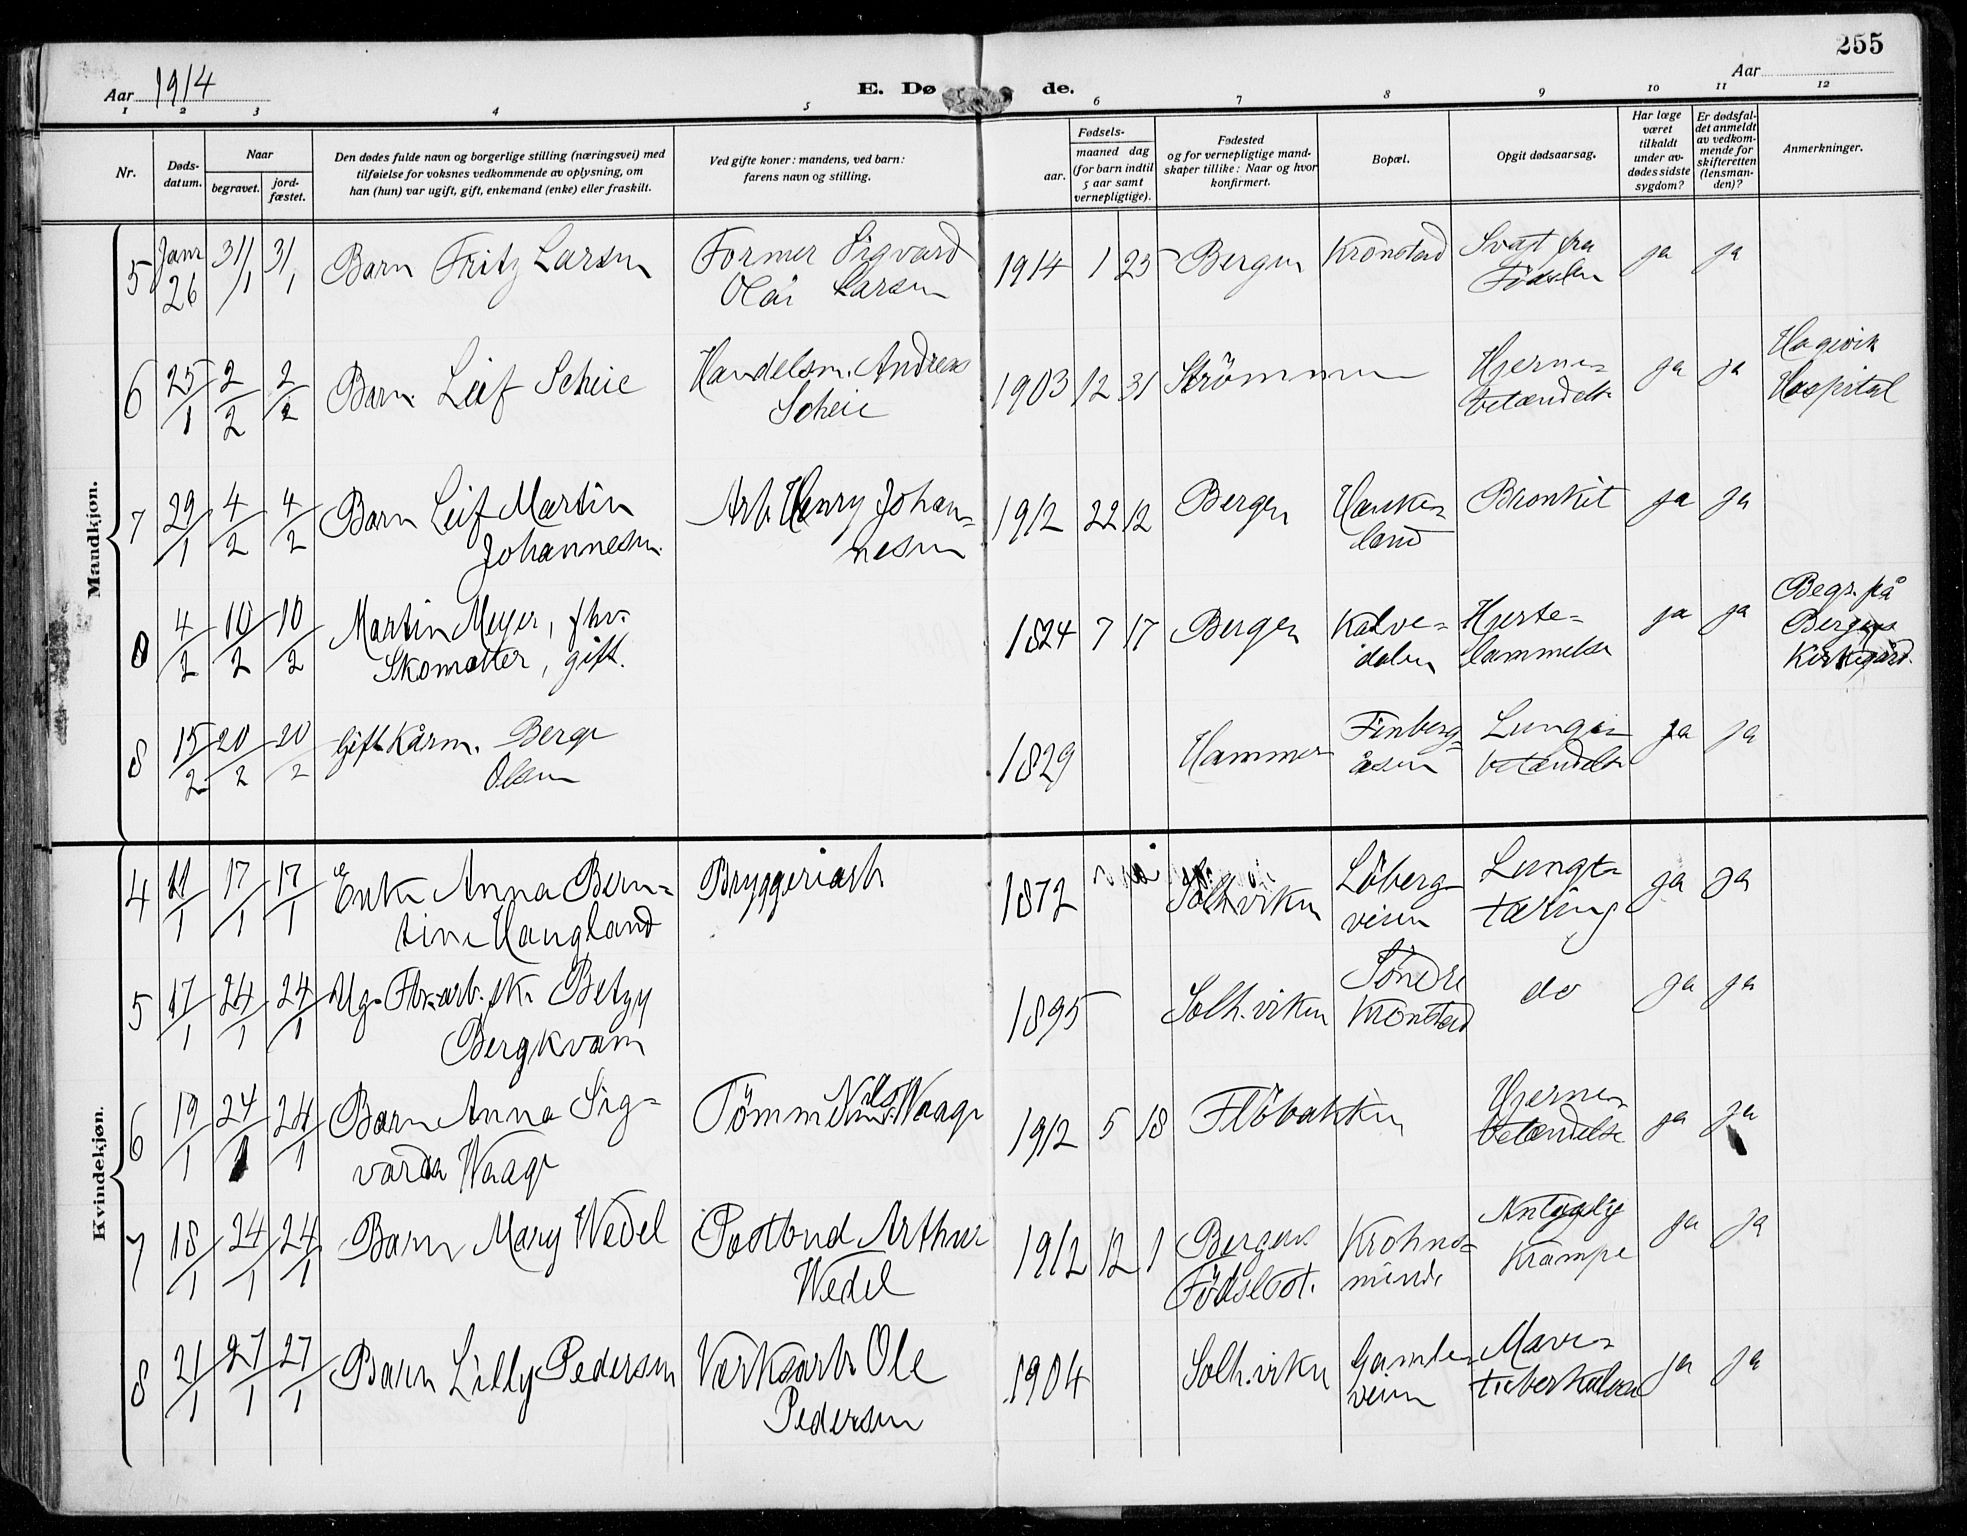 255
Aar 1914
E. Dø de.
Aar
1 2 3 4 5 6 7 8 9 10 11 12
Nr.
Døds-
datum.
Naar
begravet.
jord-
fæstet.
Den dødes fulde navn og borgerlige stilling (næringsvei) med
tilføielse for voksnes vedkommende av oplysning, om
han (hun) var ugift, gift, enkemand (enke) eller fraskilt.
Ved gifte koner: mandens, ved barn:
farens navn og stilling.
Fødsels-
aar.
maaned dag
(for barn indtil
5 aar samt
vernepligtige).
Fødested
og for vernepligtige mand-
skaper tillike: Naar og hvor
konfirmert.
Bopæl.
Opgit dødsaarsag.
Har læge
været
tilkaldt
under av-
dødes sidste
sygdom?
Er dødsfal-
det anmeldt
av vedkom-
mende for
skifteretten
(lensman-
den)?
Anmerkninger.
Mandkjøn.
5 Janr 26 31/1 31/1 Barn Fritz Larsen Former Sigvard
Olai Larsen 1914 1 25 Bergen Kronstad Svagt fra
Födselen ja ja
6 25/1 2/2 2/2 Barn Leif Scheie Handelsm. Andreas
Scheie 1903 12 31 Strömmen Hjerne-
betændelse ja ja Hagevik
Hospital
7 29/1 4/2 4/2 Barn Leif Martin
Johannesen Arb. Henry Johan-
nesen 1912 22 12 Bergen Haukе-
land Bronkit ja ja
8 4/2 10/2 10/2 Martin Meyer, fhv.
Skomaker, gift. 1824 7 17 Bergen Kalve-
dalen Hjerte-
lammelse ja ja Begr. på
Bergens
Kirkegård.
8 15/2 20/2 20/2 Gift Kårm. Berge
Olsen 1829 Hammer Finberg-
åsen Lunge-
betændelse ja ja
Kvindekjøn.
4 11/1 17/1 17/1 Enke Anna Bern-
tine Haugland Bryggeriarb 1872 Solh.viken Löberg-
veien Lunge-
tæring ja ja
5 17/1 24/1 24/1 Ug. Fbr.arb.sk. Betzy
Bergkvam 1895 Solh.viken Söndre
Kronstad do ja ja
6 19/1 24/1 24/1 Barn Anna Sig-
varda Waage Tömmerm. Nils Waage 1912 5 18 Flöbakken Hjerne-
betændelse ja ja
7 18/1 24/1 24/1 Barn Mary Wedel Postbud Arthur
Wedel 1912 12 1 Bergens
Födselsst. Krohns-
minde
Krampe ja ja
8 21/1 27/1 27/1 Barn Lilly Pedersen Værksarb. Ole
Pedersen 1904 Solh.viken Gamle-
veien Mave-
tuberkulose ja ja